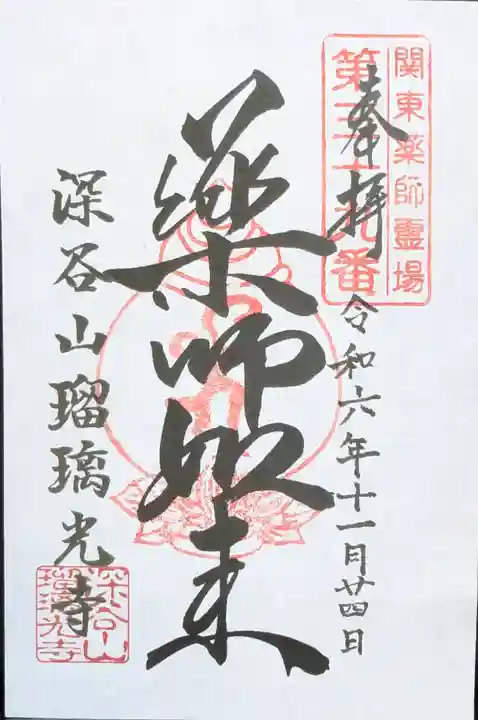 関東薬師霊場
第三十九番
奉拝
令和六年十一月廿四日
薬師如来
深谷山瑠璃光寺
深谷山
瑠璃光寺